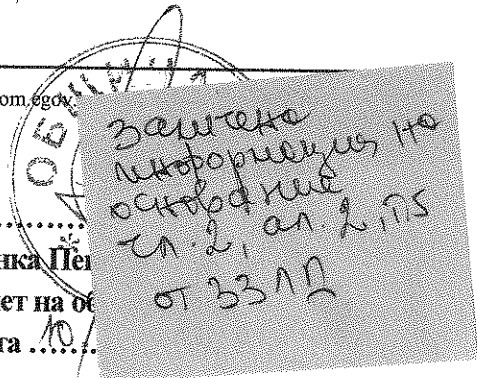 om.egov.
ОБЩИН
Защитена
информация на
основание
чл. 2, ал. 2, т.5
от ЗЗЛД
нка Пе
ет на об
та 10